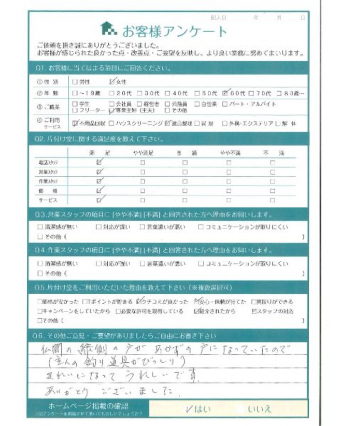 記入日 年 月 日
お客様アンケート
ご依頼を頂き誠にありがとうございました。
お客様が感じられた良かった点・改善点・ご要望を反映し、より良い業務に努めてまいります。
Q1. お客様に当てはまる項目にご回答ください。
①性別 □男性 ☑女性
②年齢 □~19歳 □20代 □30代 □40代 □50代 ☑60代 □70代 □80歳~
③ご職業 □学生 □会社員 □経営者 □公務員 □自営業 □パート・アルバイト
□フリーター ☑専業主婦(主夫) □その他
④ご利用サービス ☑不用品回収 □ハウスクリーニング ☑遺品整理 □買取 □外構・エクステリア □解体
Q2. 片付け堂に関する満足度を教えて下さい。
満足 やや満足 普通 やや不満 不満
電話受付 ☑ □ □ □ □
営業受付 ☑ □ □ □ □
作業受付 ☑ □ □ □ □
価格 ☑ □ □ □ □
サービス ☑ □ □ □ □
Q3. 営業スタッフの項目に「やや不満」「不満」と回答された方へ理由をお伺いします。
□清潔感が無い □対応が遅い □言葉遣いが悪い □コミュニケーションが取りにくい
□その他( )
Q4. 作業スタッフの項目に「やや不満」「不満」と回答された方へ理由をお伺いします。
□清潔感が無い □対応が遅い □言葉遣いが悪い □コミュニケーションが取りにくい
□その他( )
Q5. 片付け堂をご利用いただいた理由を教えて下さい(※複数選択可)
□価格がなかった □ポイントが貯まる ☑クチコミが良かった ☑安心・信頼が持てた □買取りができる
□キャンペーンをしていたから □必要な許可を取得している ☑紹介されたから ☑スタッフの対応
□その他( )
Q6. その他ご意見・ご要望がありましたらご自由にお書き下さい
仏間の縁側の戸があかずの戸になっていたので
(主人の釣り道具がびっしり)
きれいになって うれしいです
ありがとうございました
ホームページ掲載の確認 ☑はい いいえ